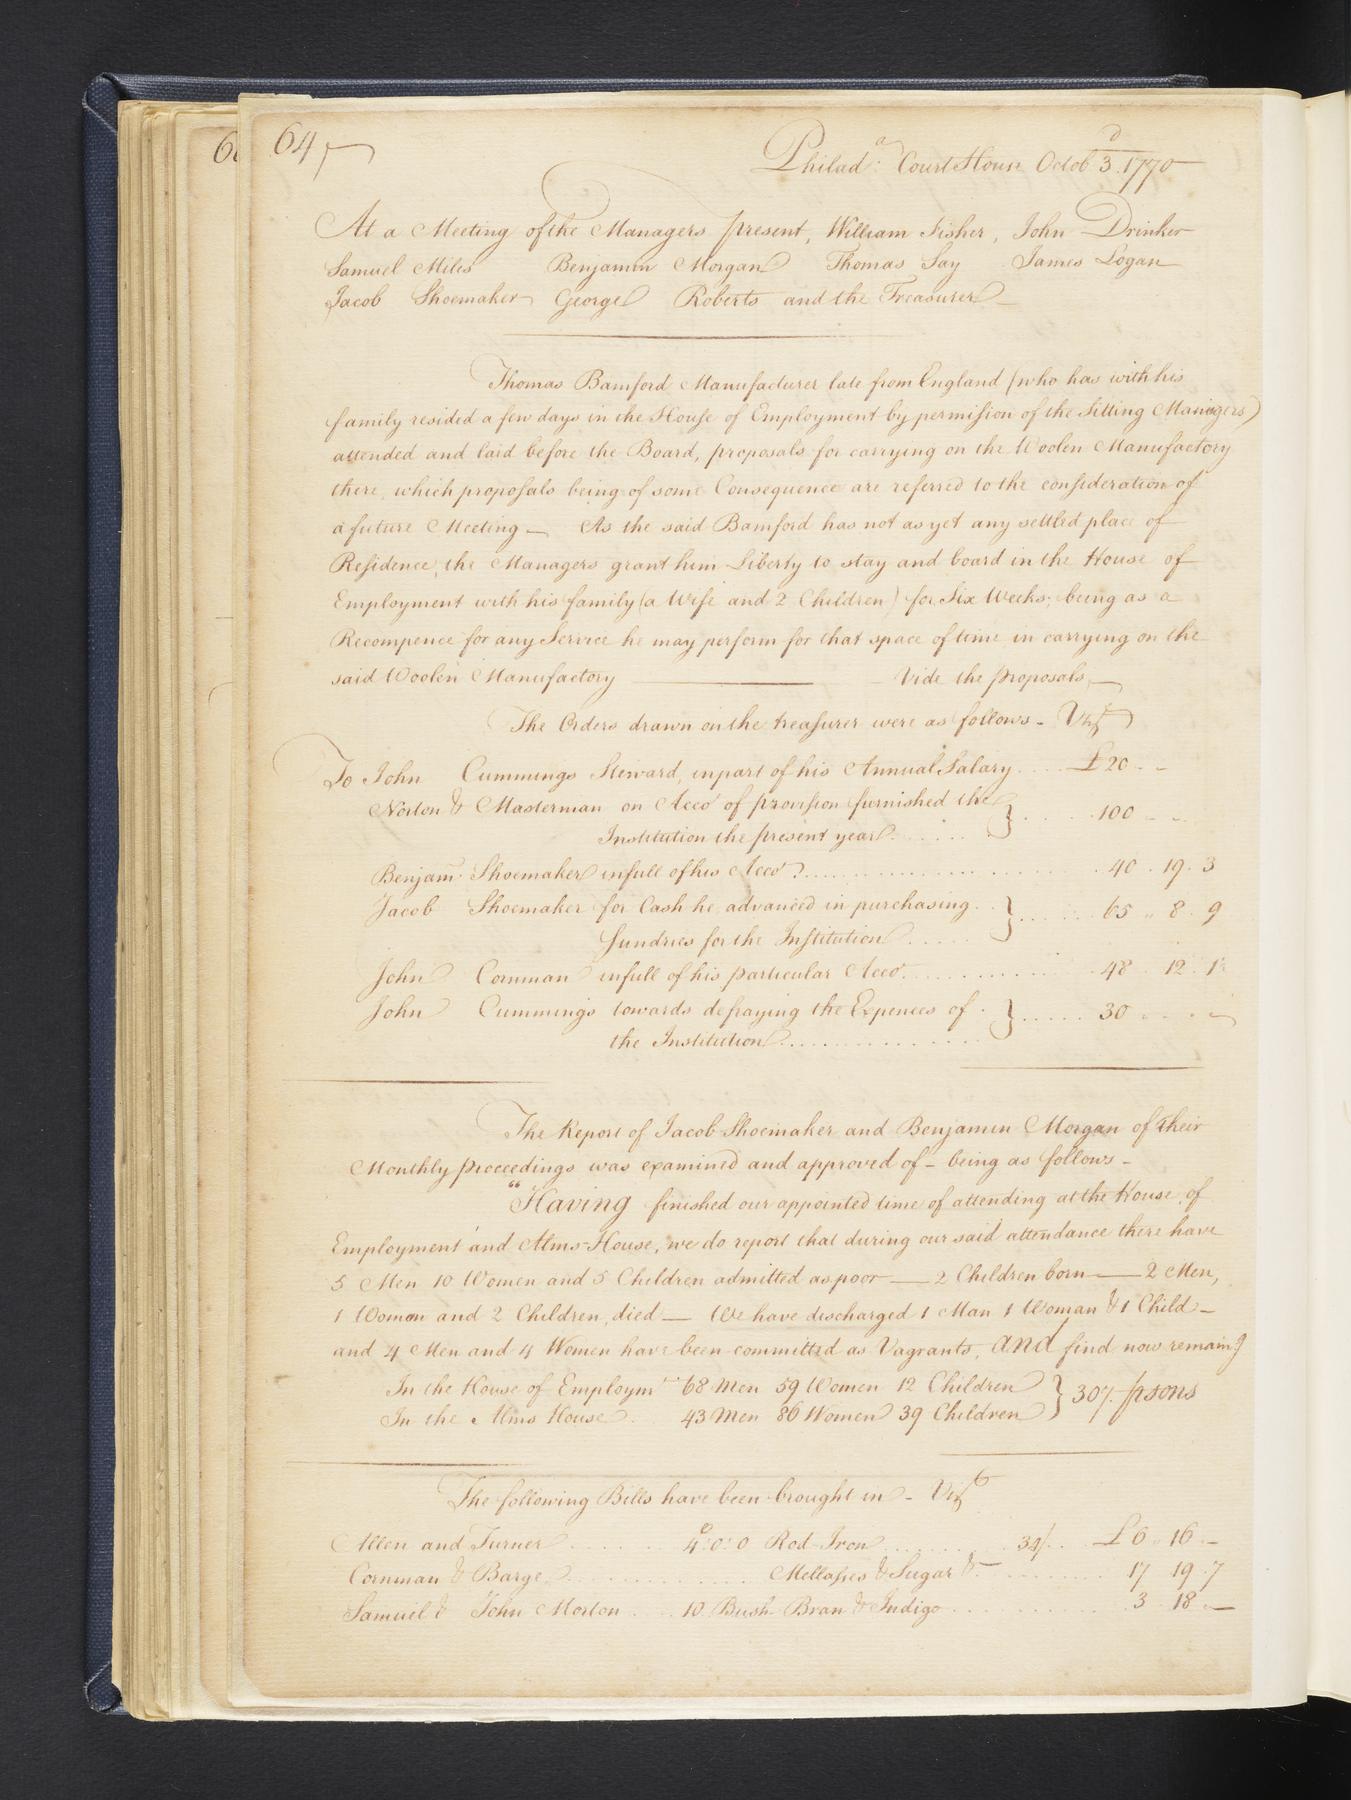 64
Philad.a Court House Octob 3.d 1770
At a Meeting of the Managers present, William Fisher, John Drinker
Samuel Miles Benjamin Morgan Thomas Say James Logan
Jacob Shoemaker George Roberts and the Treasurer
Thomas Bamford Manufacturer late from England (who has with his
family resided a few days in the House of Employment by permission of the Sitting Managers)
attended and laid before the Board, proposals for carrying on the Woolen Manufactory
there, which proposals being of some Consequence are referred to the consideration of
a future Meeting — As the said Bamford has not as yet any settled place of
Residence, the Managers grant him Liberty to stay and board in the House of
Employment with his family (a Wife and 2 Children) for Six Weeks; being as a
Recompence for any Service he may perform for that space of time in carrying on the
said Woolen Manufactory — Vide the proposals —
The Orders drawn on the treasurer were as follows - Vizt
To John Cummings Steward, in part of his Annual Salary .... £20 - -
Norton & Masterman on Acco.t of provision furnished the } .... 100 - -
Institution the present year
Benjam. Shoemaker in full of his Acco.t .... 40 . 19 . 3
Jacob Shoemaker for Cash he advanced in purchasing } .... 65 .. 8 . 9
Sundries for the Institution
John Cornman in full of his particular Acco.t .... 48 . 12 . 1
John Cummings towards defraying the Expences of } .... 30 - -
the Institution
The Report of Jacob Shoemaker and Benjamin Morgan of their
Monthly proceedings was examined and approved of - being as follows -
"Having finished our appointed time of attending at the House of
Employment and Alms-House, we do report that during our said attendance there have
5 Men 10 Women and 5 Children admitted as poor — 2 Children born — 2 Men,
1 Woman and 2 Children, died — We have discharged 1 Man 1 Woman & 1 Child —
and 4 Men and 4 Women have been committed as Vagrants, and find now remaing
In the House of Employmt 68 Men 59 Women 12 Children } 307 psons
In the Alms House 43 Men 86 Women 39 Children
The following Bills have been brought in - Vizt
Allen and Turner .... 4:0:0 Rod Iron .... 34/ .. £6 .. 16 . -
Cornman & Barge .... Mellasses & Sugar &c .... 17 19 . 7
Samuel & John Morton .... 10 Bush Bran & Indigo .... 3 . 18 . —